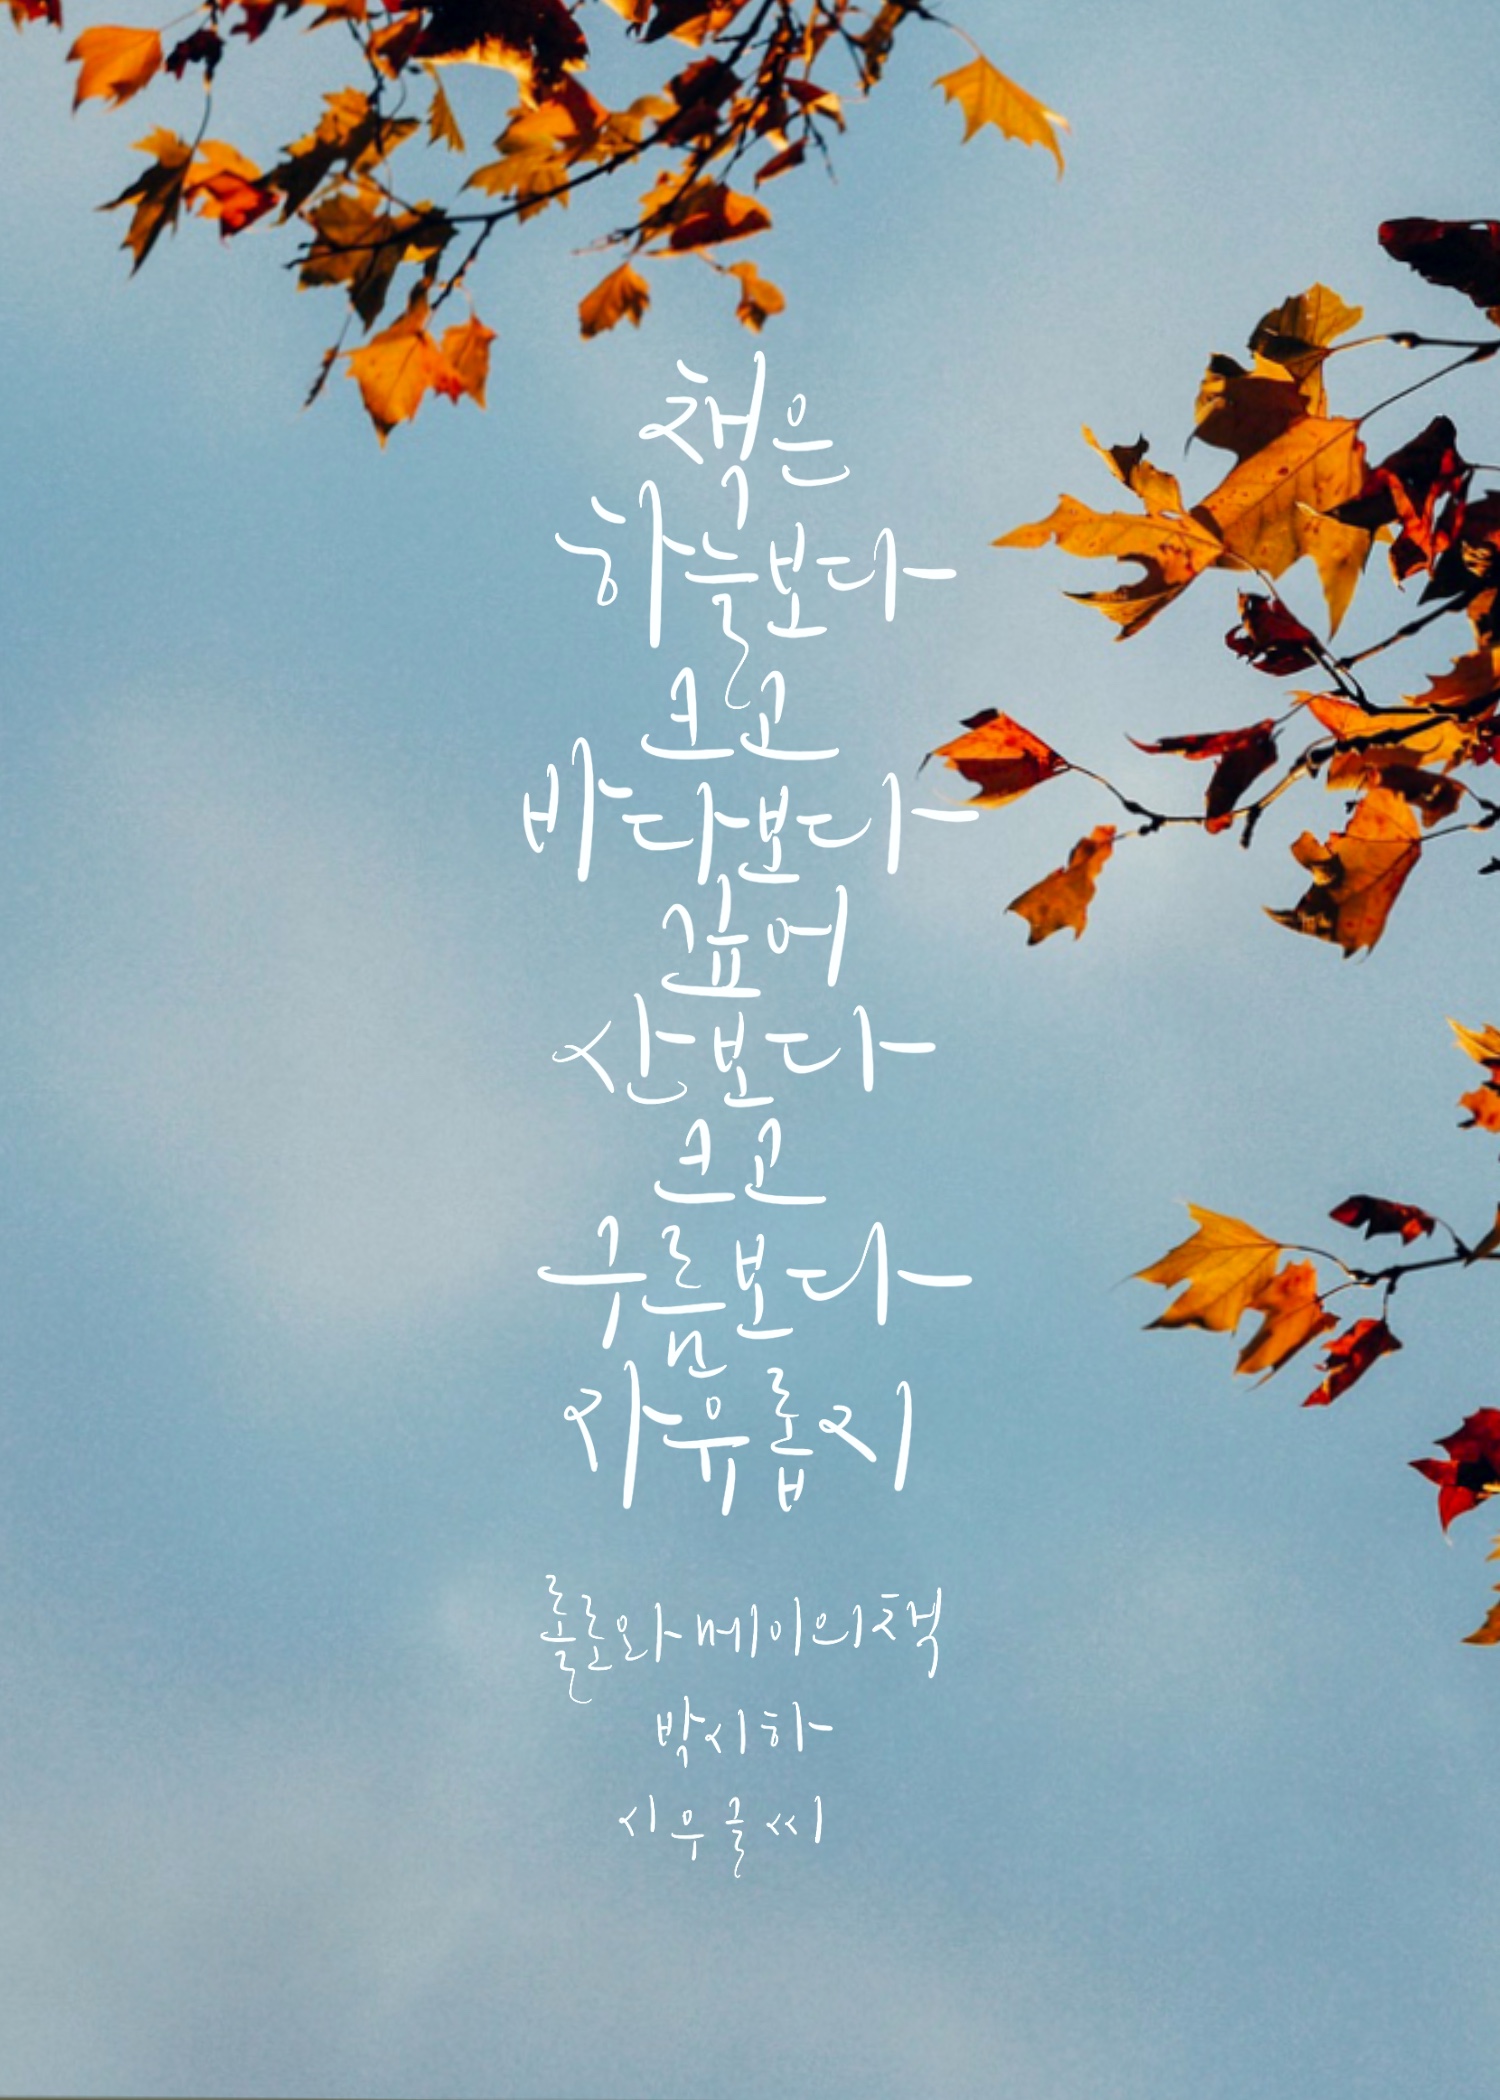 책은
하늘보다
크고
바다보다
깊어
산보다
크고
구름보다
자유롭지
롤로와 메이의 책
박시하
시우글씨